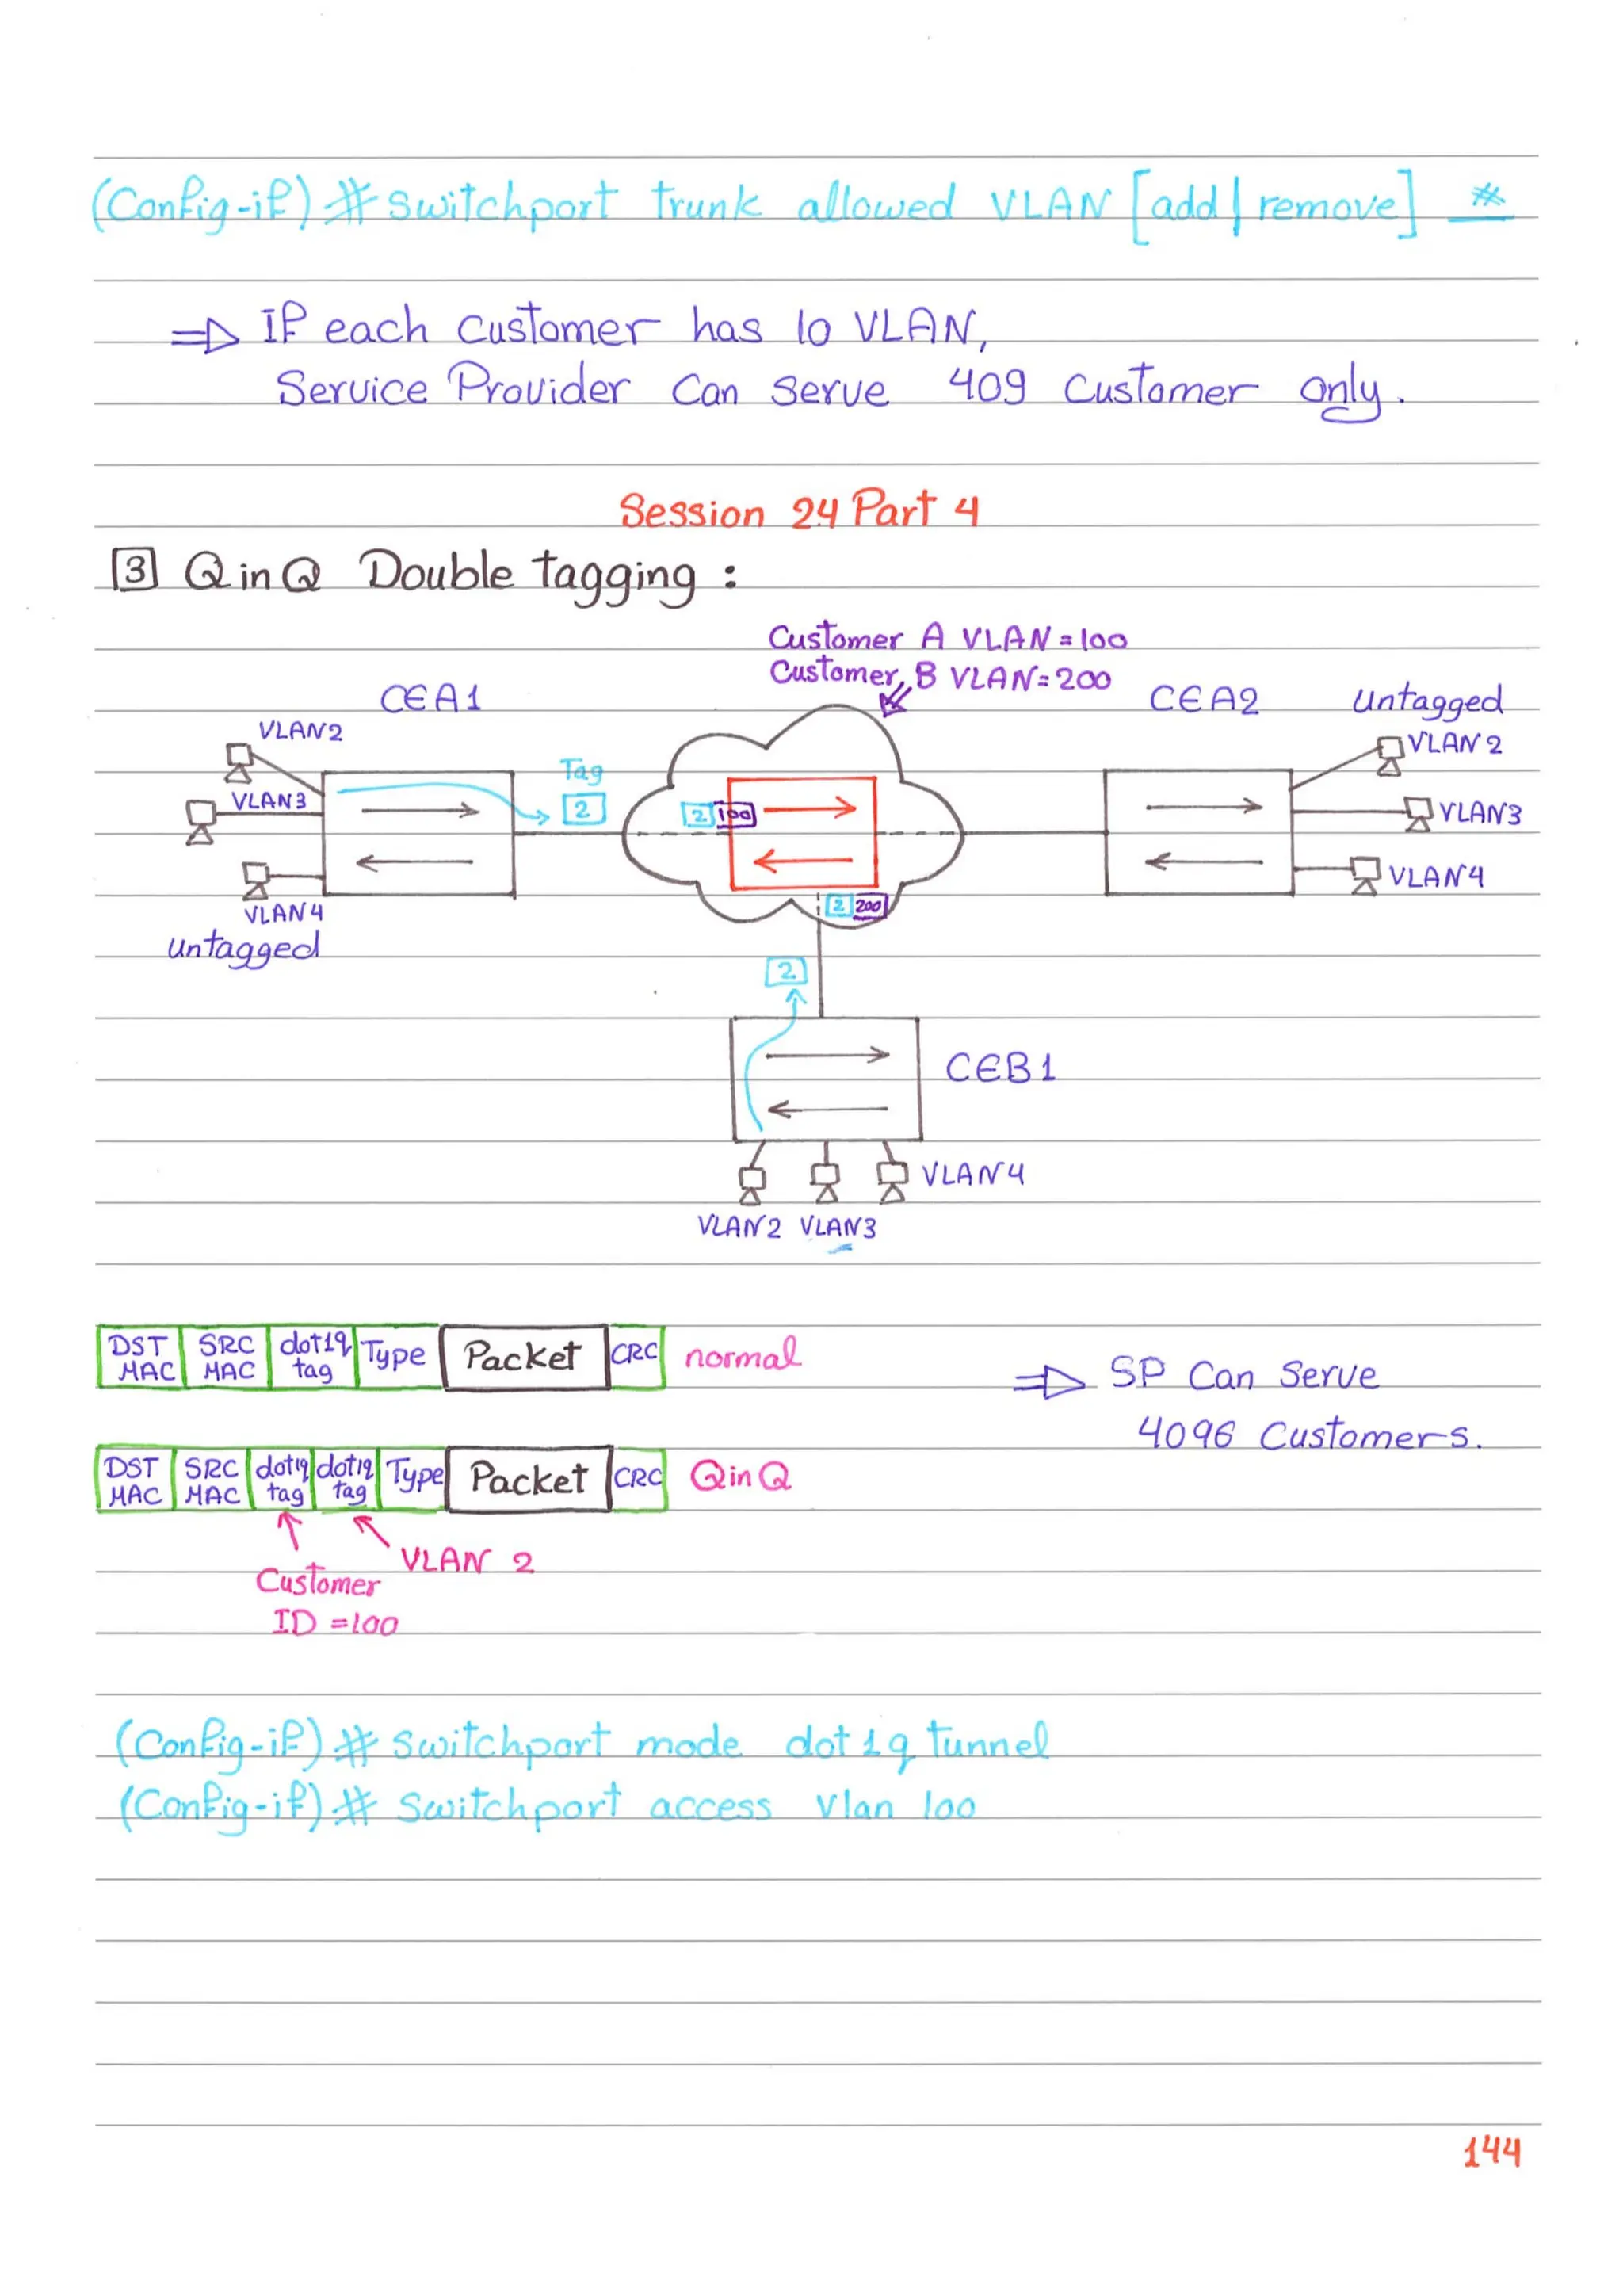 (Config-if)# Switchport trunk allowed VLAN [add | remove] *
⇒ If each Customer has 10 VLAN,
Service Provider Can Serve 409 Customer only.
Session 24 Part 4
3 QinQ Double tagging :
Customer A VLAN = 100
Customer B VLAN = 200
CEA1
CEA2
Untagged
VLAN2
VLAN 2
Tag
2
VLAN3
2 100
VLAN3
VLAN4
VLAN4
2 200
Untagged
2
CEB1
VLAN4
VLAN2 VLAN3
DST MAC SRC MAC dot1q tag Type Packet CRC normal
⇒ SP Can Serve
4096 Customers.
DST MAC SRC MAC dot1q tag dot1q tag Type Packet CRC QinQ
VLAN 2
Customer
ID = 100
(Config-if)# Switchport mode dot1q tunnel
(Config-if)# Switchport access Vlan 100
144